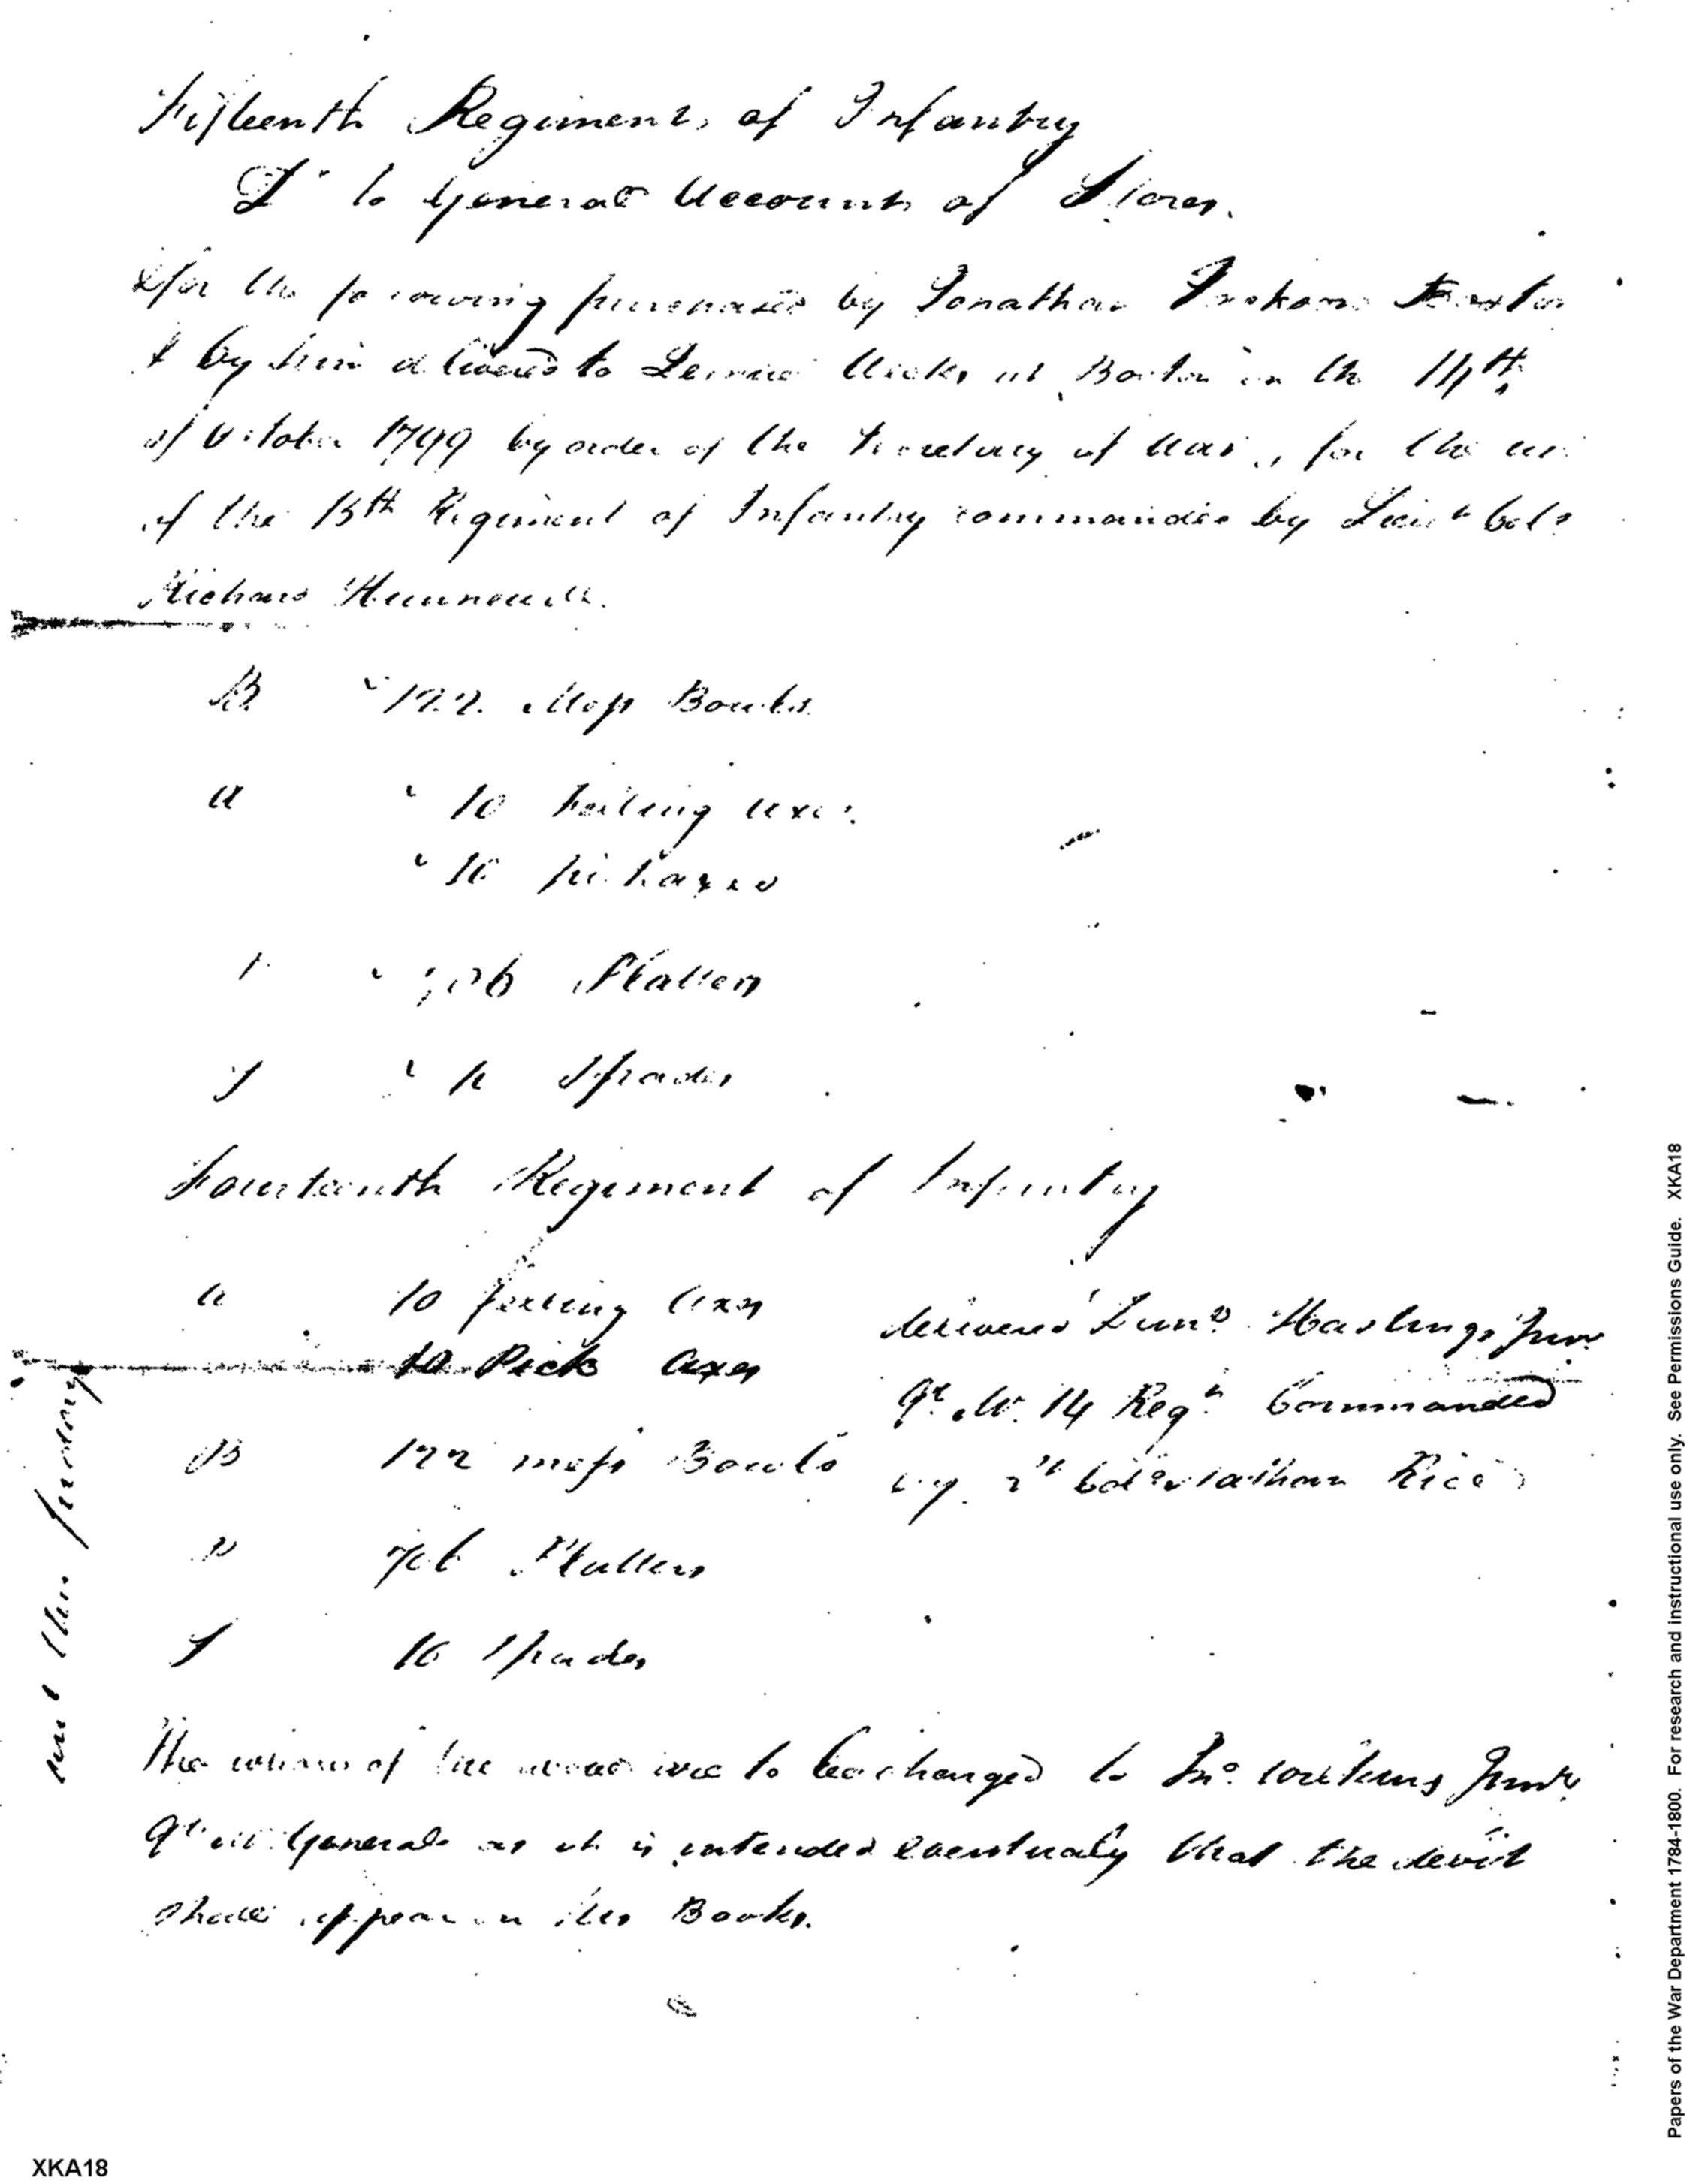 Fifteenth Regiment of Infantry
Dr to General Account of Stores.
for the following purchased by Jonathan Jackson
& by him delivered to Lemuel Weeks at Boston on the 14th
of October 1799 by order of the Secretary of War, for the use
of the 15th Regiment of Infantry commanded by Lieut Colo
Richard Hunnewell.
B 122 Mess Bowls
a 10 felling axes
10 pickaxes
P 706 Platters
S Spades
Fourteenth Regiment of Infantry
a 10 felling Axes
10 Pick Axes
B 122 mess Bowls
P 706 Platters
S 16 Spades
delivered Hastings Junr
Qr M. 14 Regt Commanded
by Lt Colo Nathan Rice
The whole of the above are to be charged to Jno. Wilkins Junr.
Qr M General as it is intended eventualy that the devit
shall appear in his Books.
Papers of the War Department 1784-1800. For research and instructional use only. See Permissions Guide. XKA18
XKA18